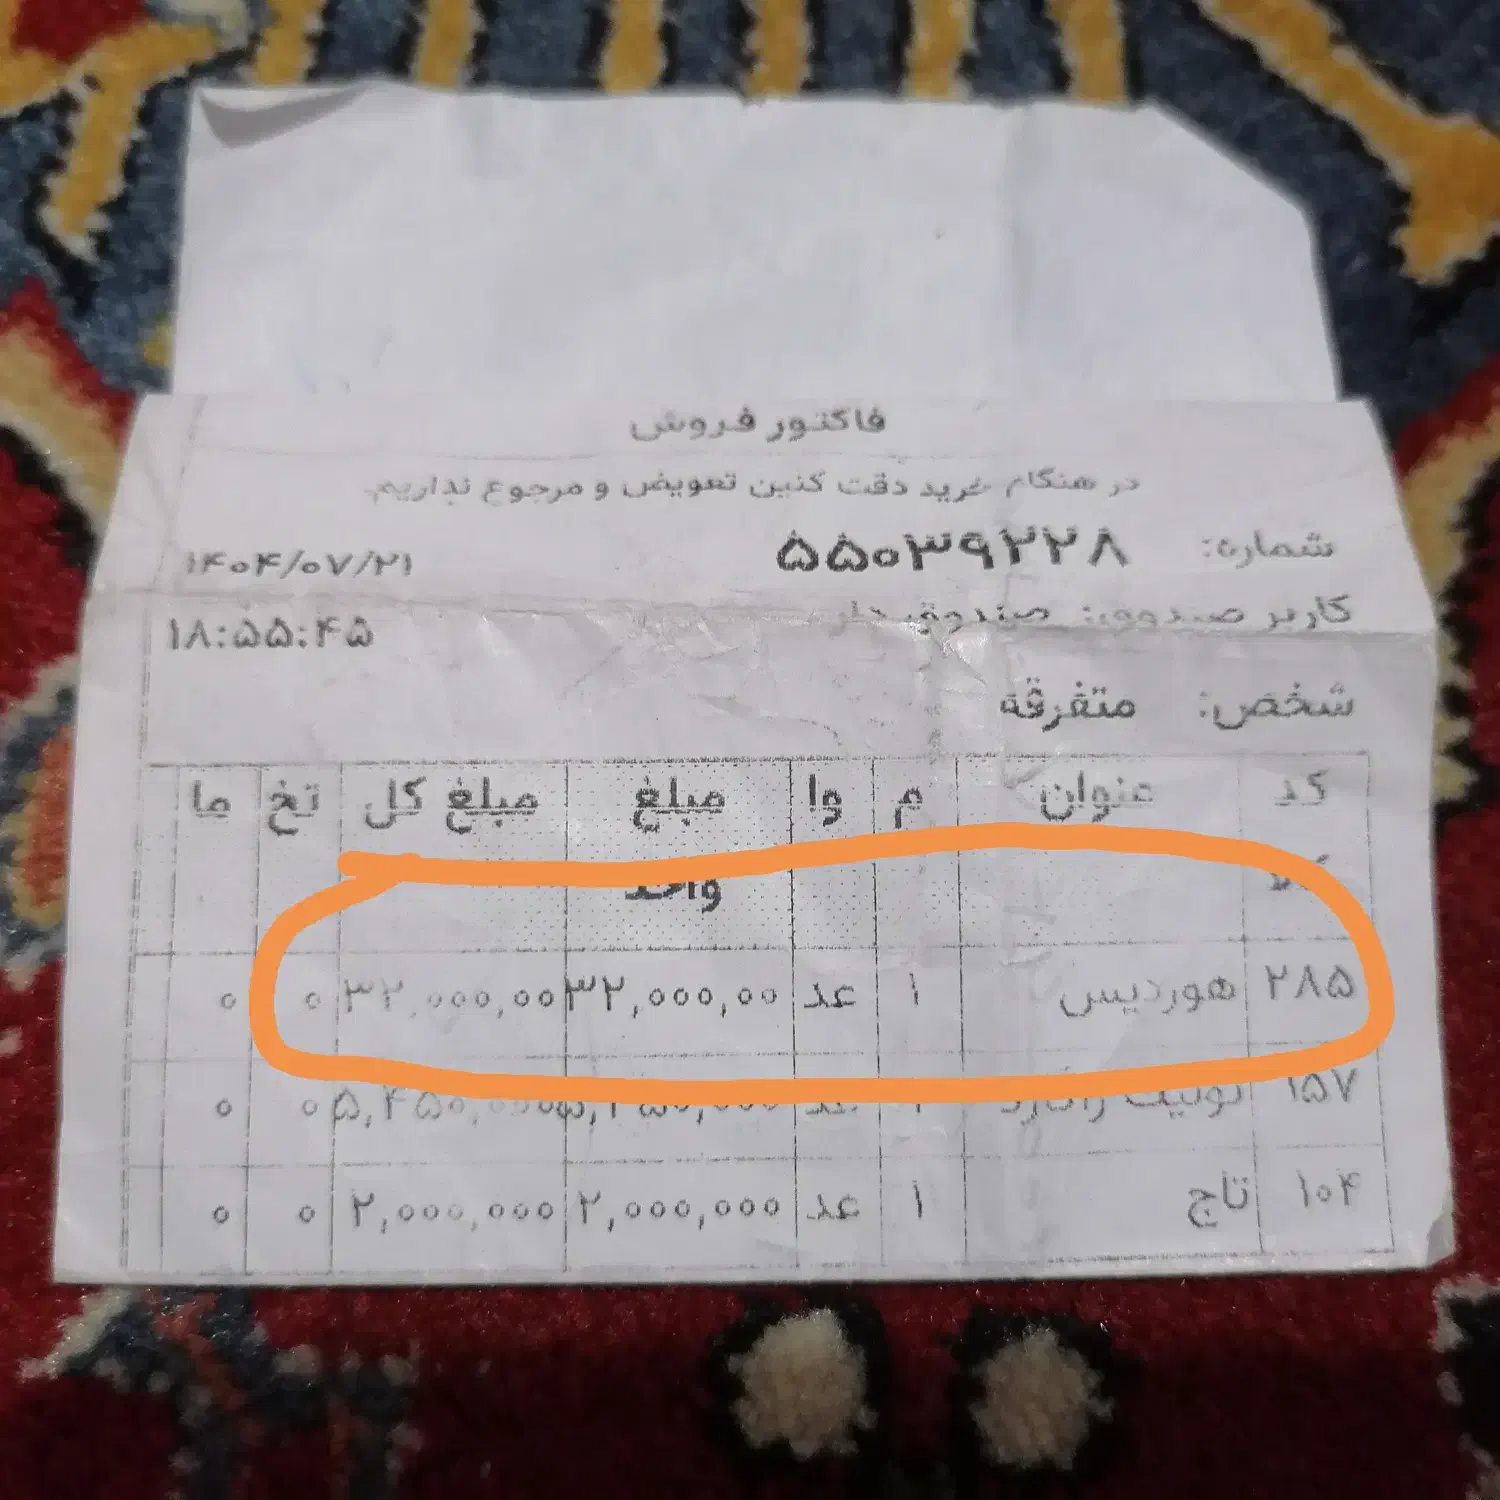 فاکتور فروش
در هنگام خرید دقت کنین تعویض و مرجوع نداریم.
شماره: ۵۵۰۳۹۲۲۸ ۱۴۰۴/۰۷/۲۱
کاربر صندوق: صندوق ۱۸:۵۵:۴۵
شخص: متفرقه
کد عنوان م وا مبلغ مبلغ کل تخ ما
واحد
۲۸۵ هوردیس ۱ عد ۳۲,۰۰۰,۰۰ ۳۲,۰۰۰,۰۰ ۰ ۰
۱۵۷ ۵,۴۵۰,۰۰۰ ۰ ۰
۱۰۴ تاج ۱ عد ۲,۰۰۰,۰۰۰ ۲,۰۰۰,۰۰۰ ۰ ۰